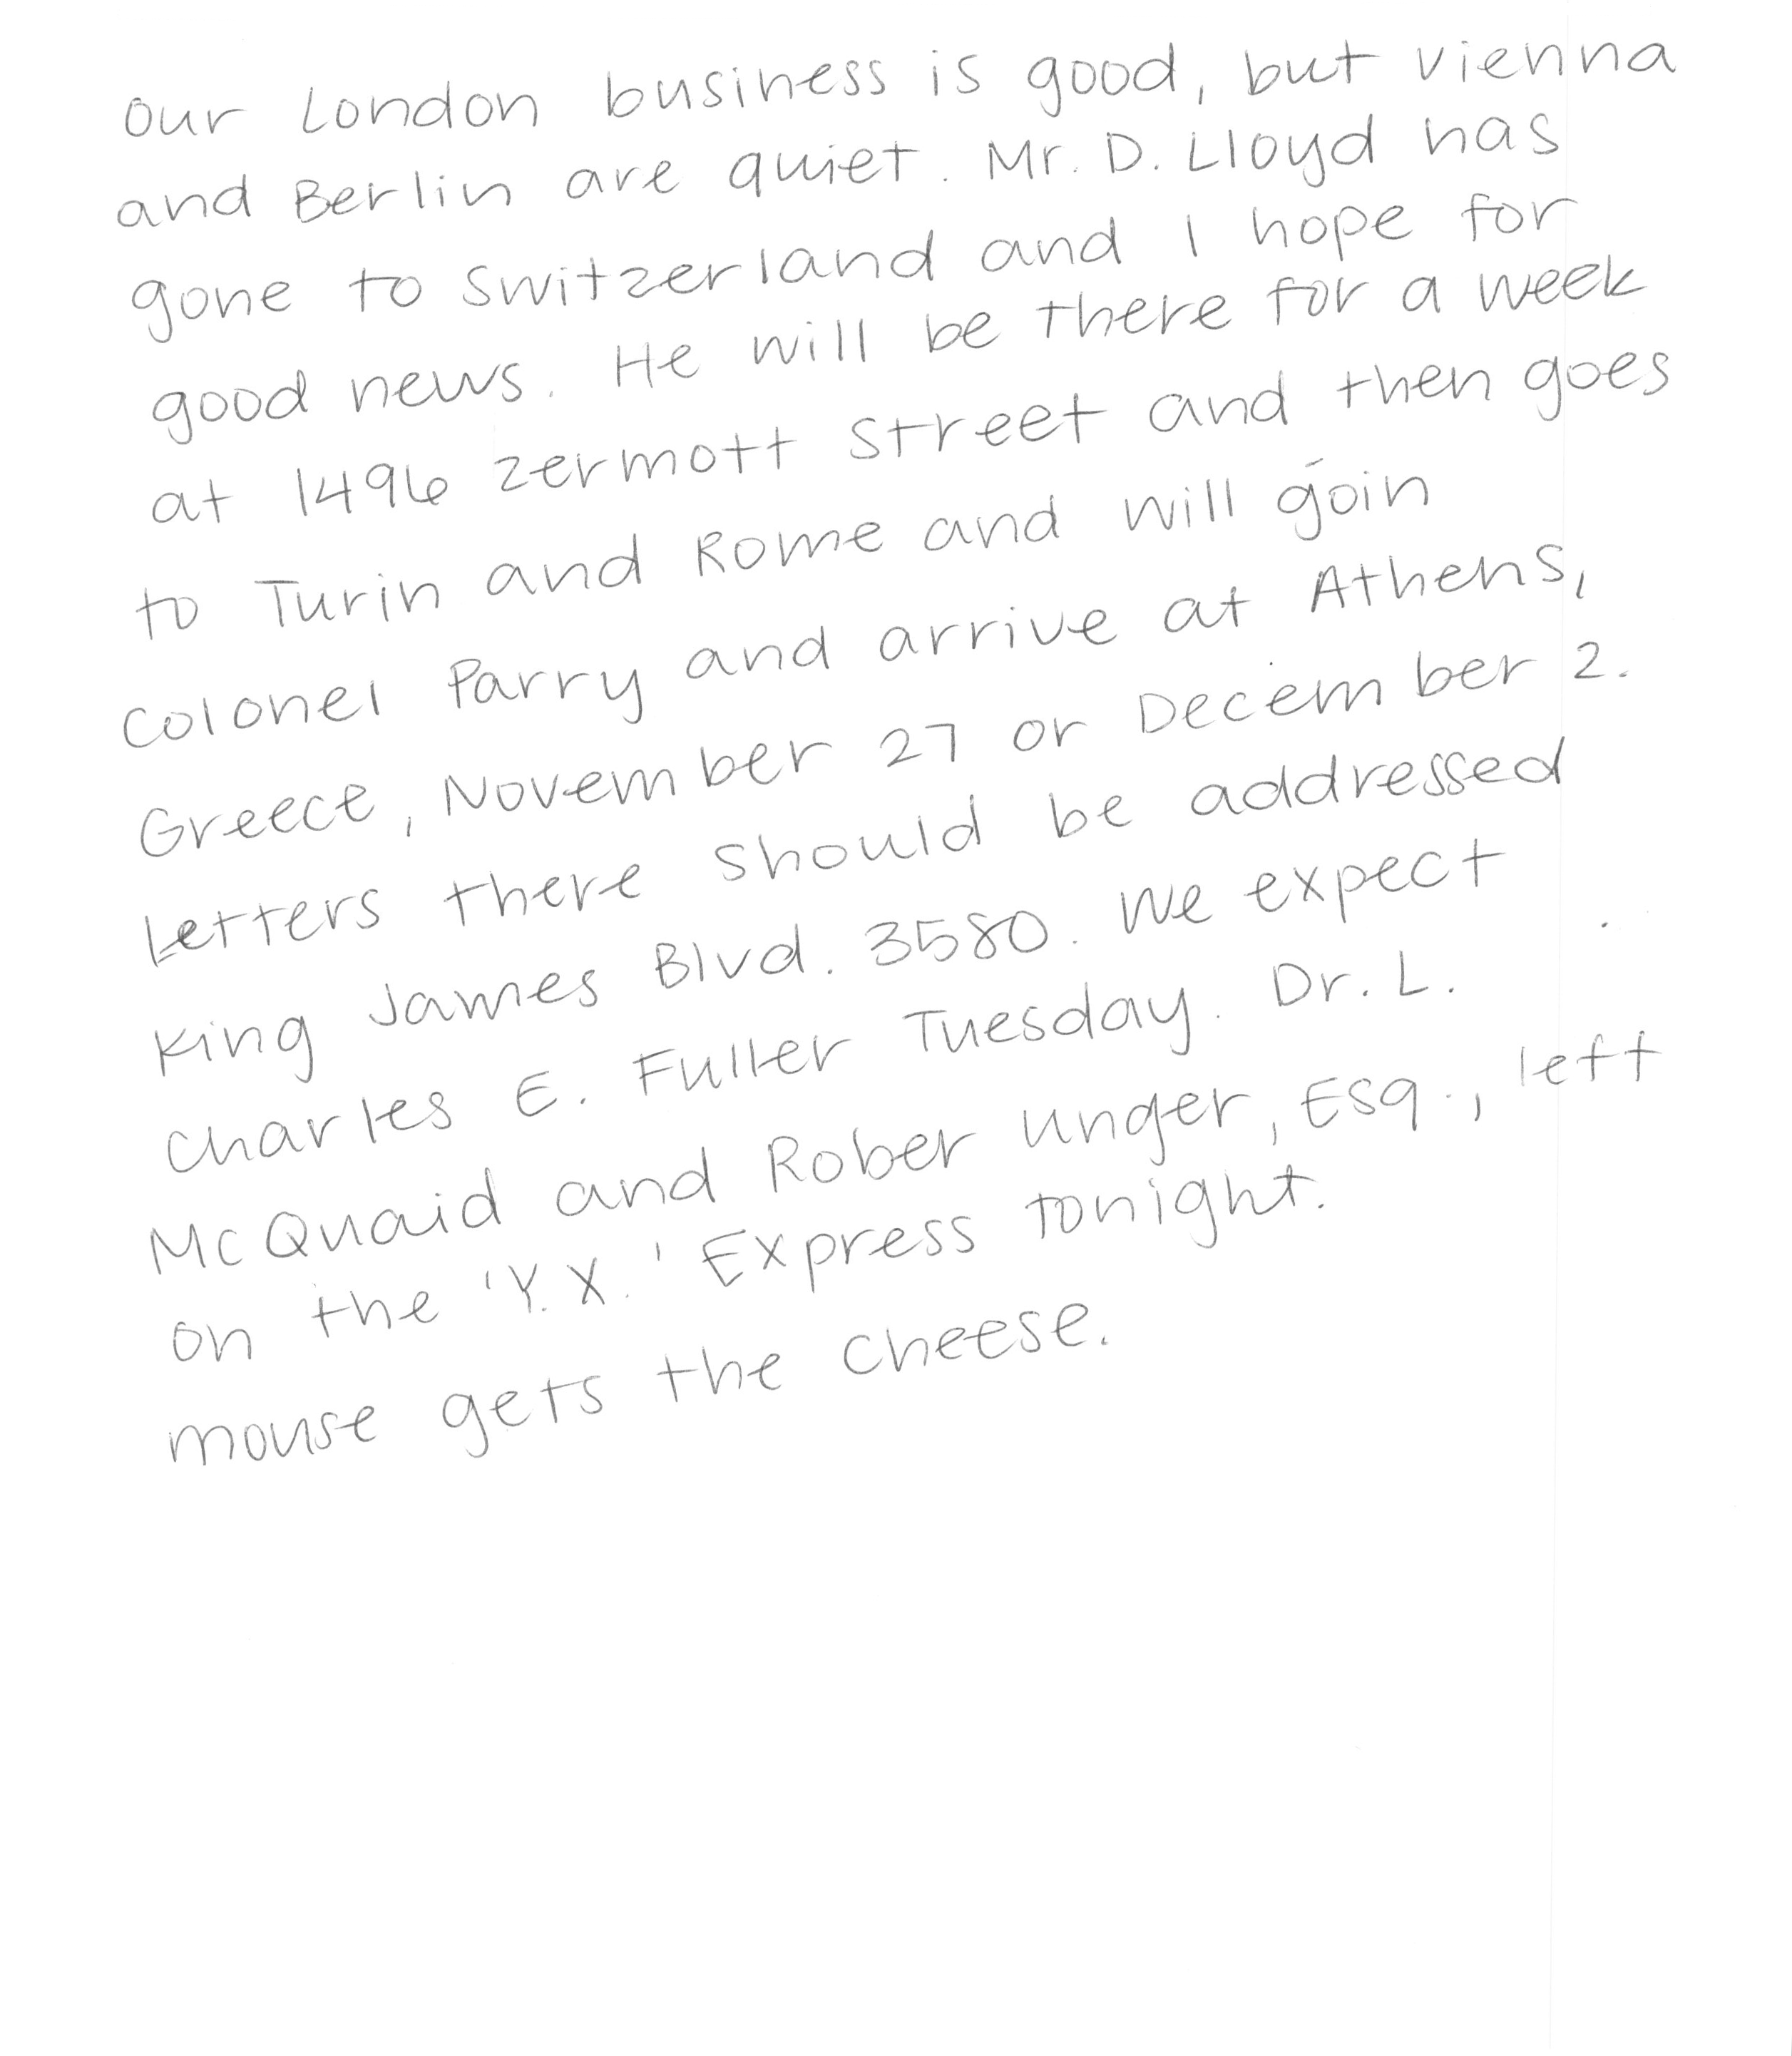 Our London business is good, but Vienna
and Berlin are quiet. Mr. D. Lloyd has
gone to Switzerland and I hope for
good news. He will be there for a week
at 1496 Zermott Street and then goes
to Turin and Rome and will join
Colonel Parry and arrive at Athens,
Greece, November 27 or December 2.
Letters there should be addressed
King James Blvd. 3580. We expect
Charles E. Fuller Tuesday. Dr. L.
McQuaid and Rober Unger, Esq., left
on the 'Y.X.' Express tonight.
mouse gets the cheese.